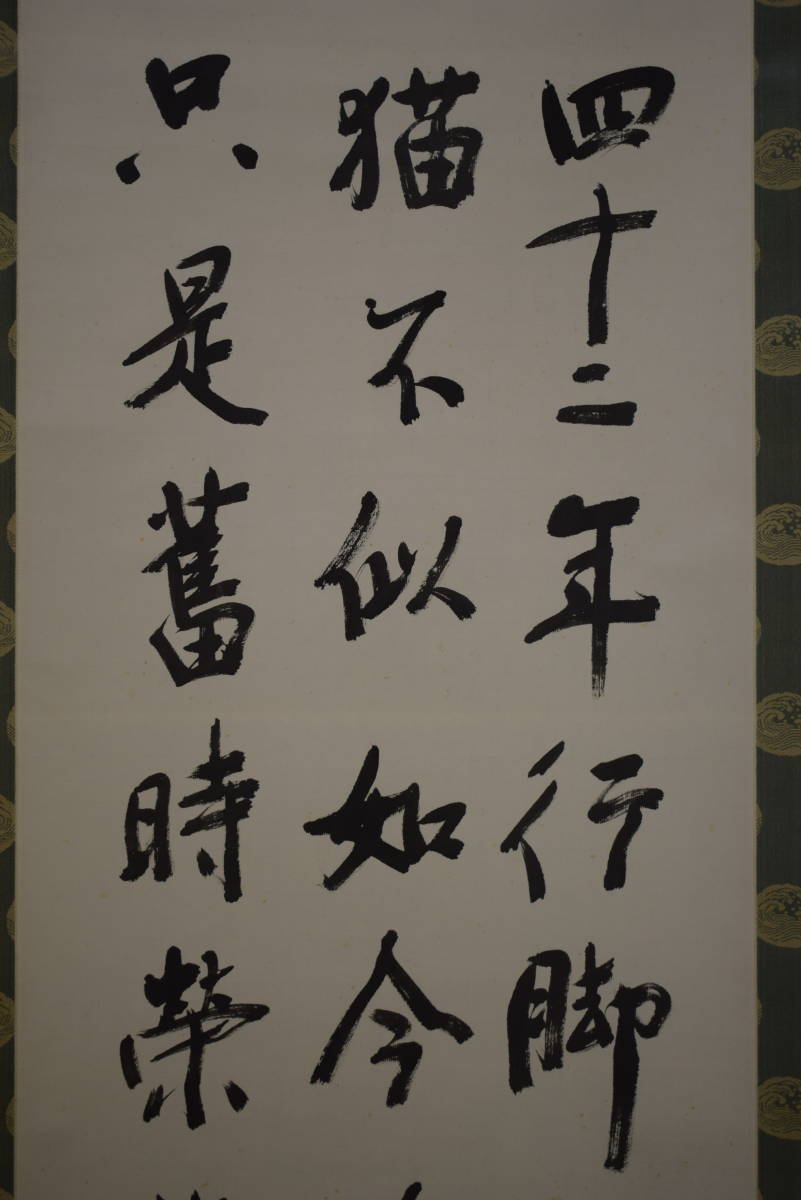 四十二年行脚
猫不似如今
只是舊時榮